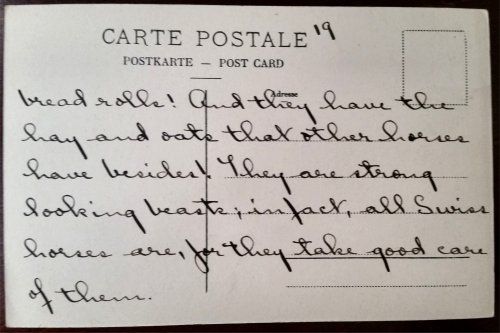 CARTE POSTALE 19
POSTKARTE — POST CARD
Adresse
bread rolls! And they have the
hay and oats that other horses
have besides! They are strong
looking beasts; in fact, all Swiss
horses are, for they take good care
of them.